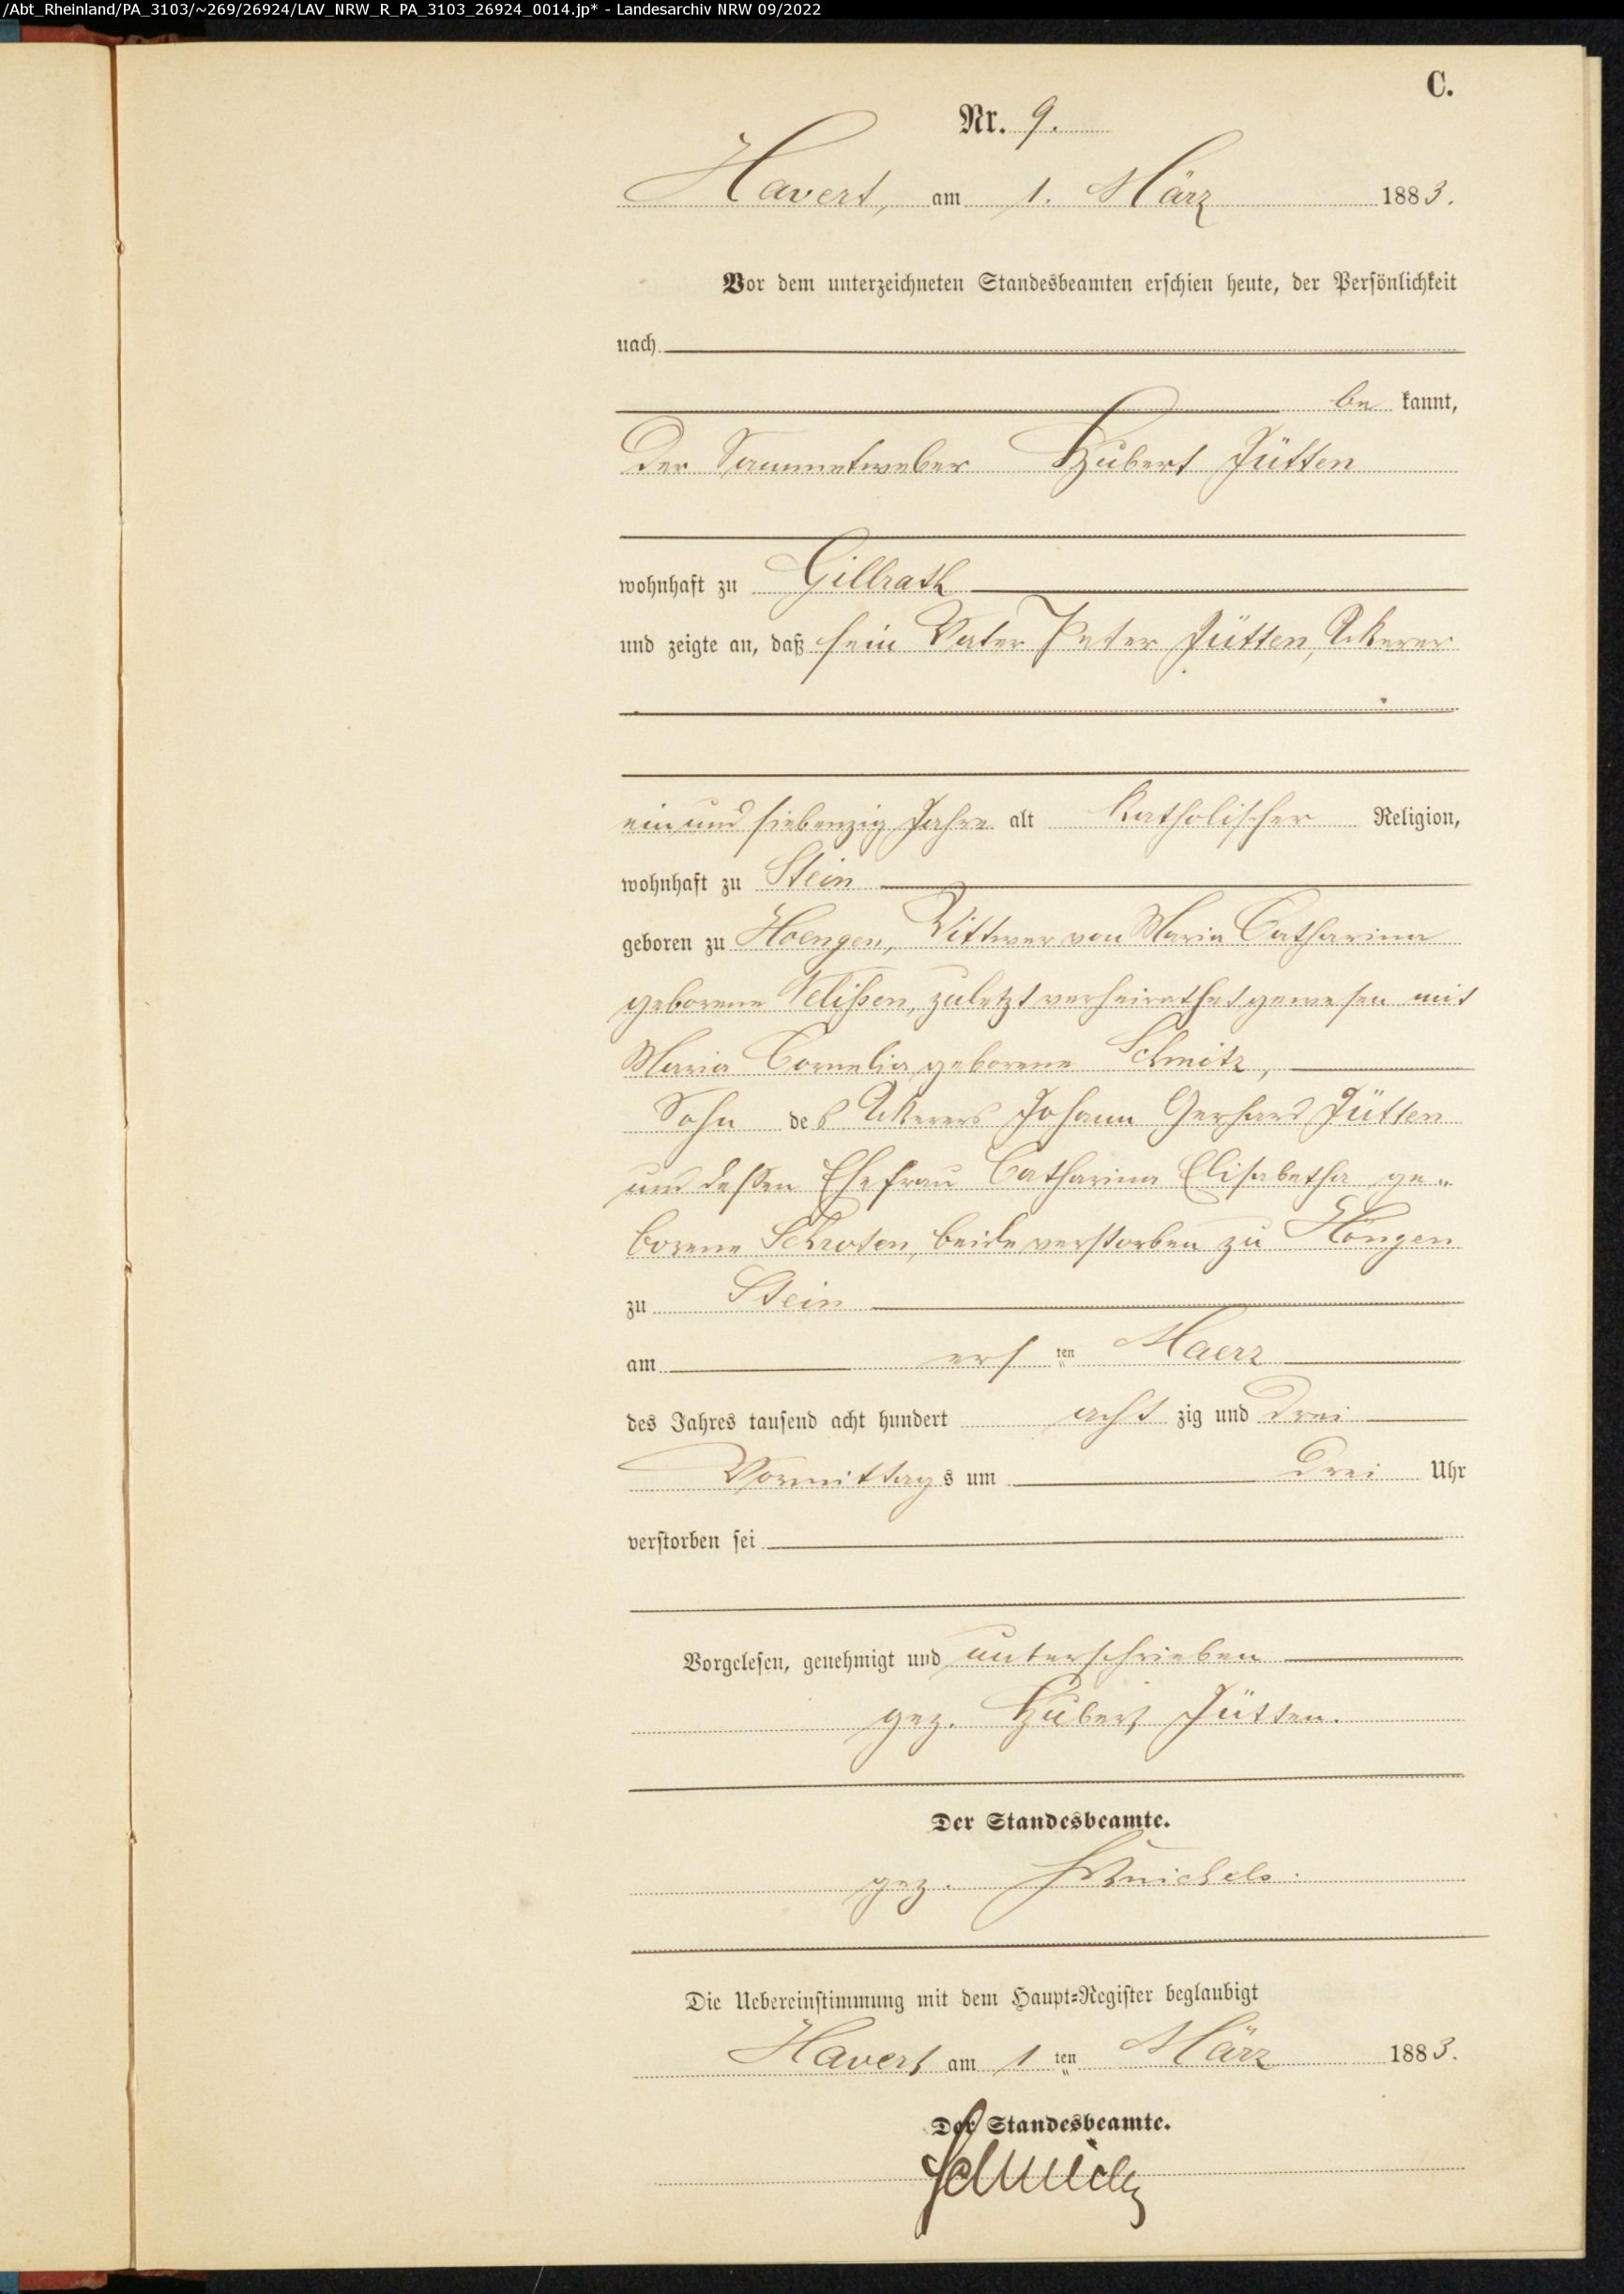 /Abt_Rheinland/PA_3103/~269/26924/LAV_NRW_R_PA_3103_26924_0014.jp* - Landesarchiv NRW 09/2022
C.
Nr. 9.
Havert, am 1. März 1883.
Vor dem unterzeichneten Standesbeamten erschien heute, der Persönlichkeit
nach
be kannt,
der Sammetweber Hubert Jütten
wohnhaft zu Gillrath
und zeigte an, daß sein Vater Peter Jütten, Ackerer
ein und siebenzig Jahre alt katholischer Religion,
wohnhaft zu Stein
geboren zu Hoengen, Wittwer von Maria Catharina
geborene Velißen, zuletzt verheirathet gewesen mit
Maria Cornelia geborene Schmitz,
Sohn des Ackerers Johann Gerhard Jütten
und deßen Ehefrau Catharina Elisabetha ge„
borene Schroten, beide verstorben zu Höngen
zu Stein
am ersten Maerz
des Jahres tausend acht hundert acht zig und drei
Vormittags um drei Uhr
verstorben sei
Vorgelesen, genehmigt und unterschrieben
gez. Hubert Jütten.
Der Standesbeamte.
gez.
Die Uebereinstimmung mit dem Haupt=Register beglaubigt
Havert am 1ten März 1883.
Der Standesbeamte.